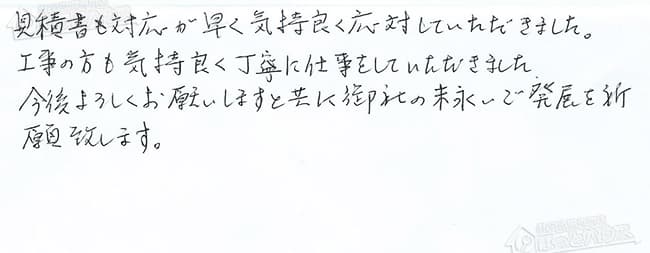 見積書も対応が早く気持良く応対していただきました。
工事の方も気持良く丁寧に仕事をしていただきました
今後よろしくお願いしますと共に御社の末永いご発展を祈
願致します。